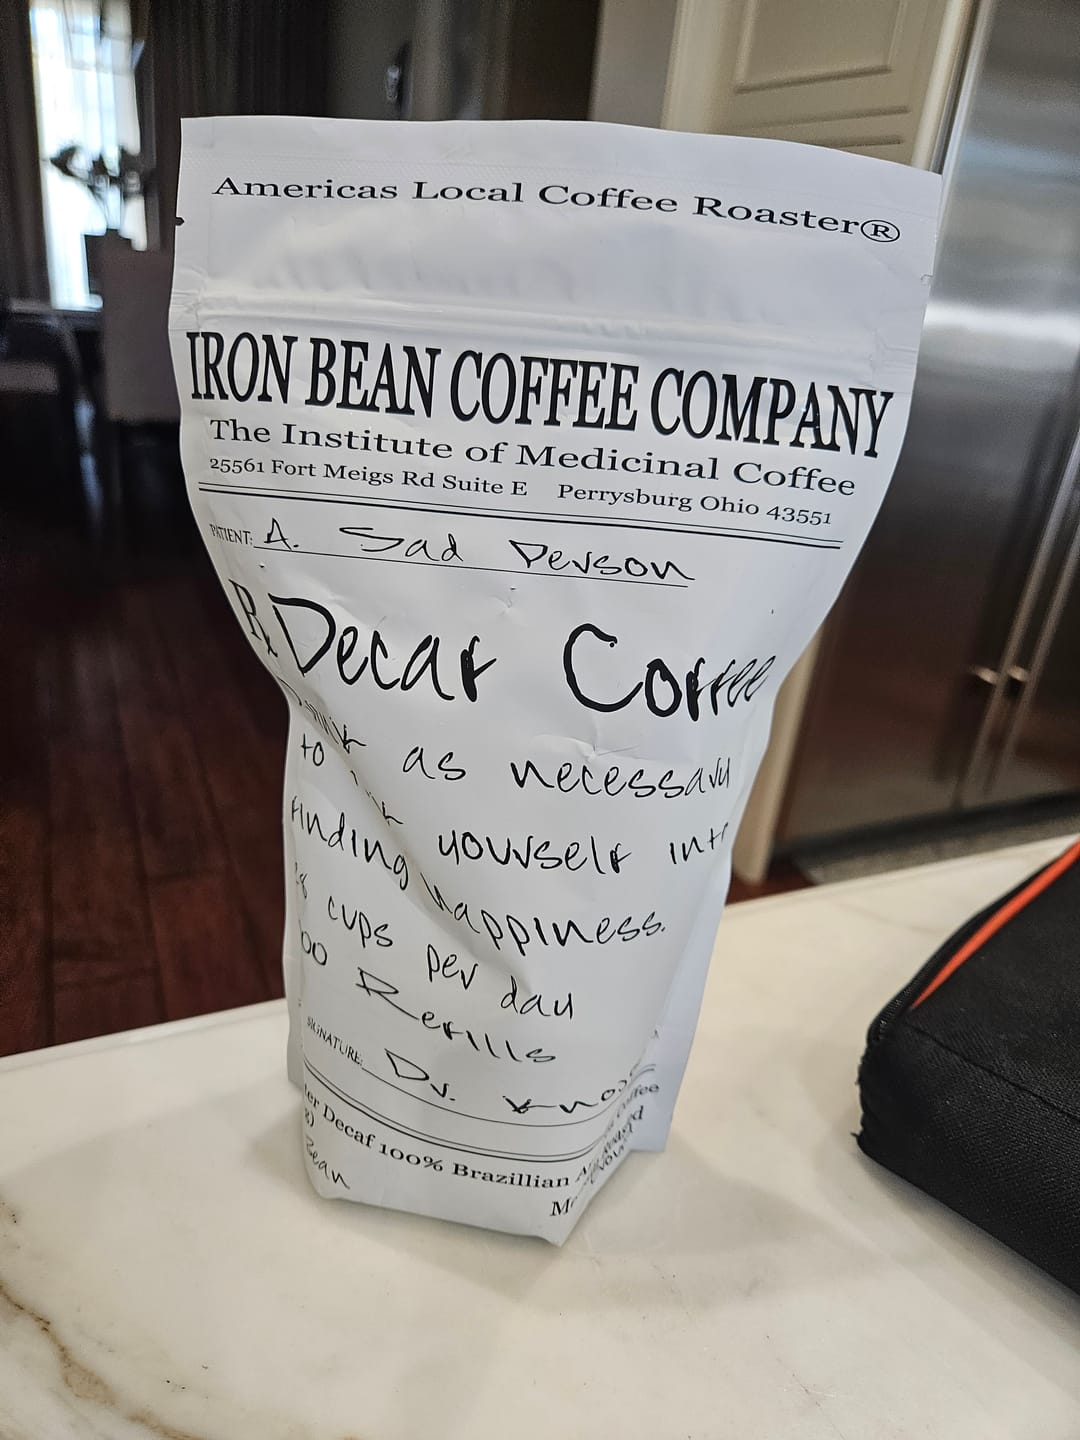 Americas Local Coffee Roaster®
IRON BEAN COFFEE COMPANY
The Institute of Medicinal Coffee
25561 Fort Meigs Rd Suite E Perrysburg Ohio 43551
PATIENT: A. Sad Person
Rx Decaf Coffee
as necessary
to
finding yourself
happiness.
cups per day
Refills
SIGNATURE: Dr.
Decaf 100% Brazillian
Bean